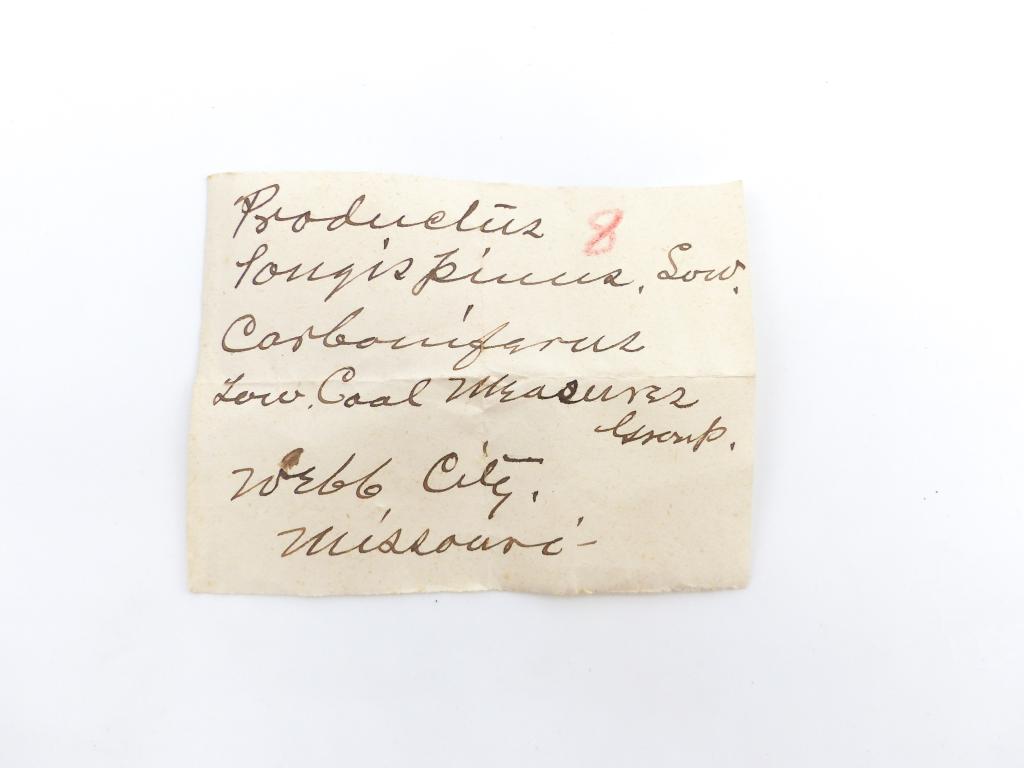 Productus
8
longispinus, Sow.
Carboniferus
Low. Coal Measures
Group.
Webb City.
Missouri-